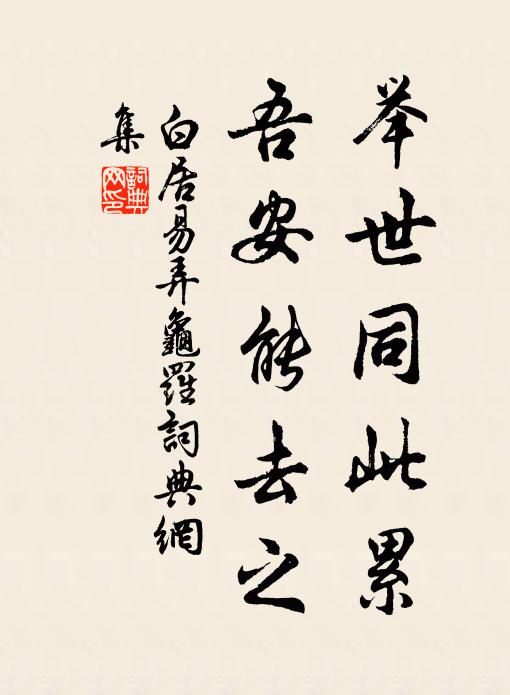 举世同此累
吾安能去之
白居易弄龜羅詞典網
集
詞典网印